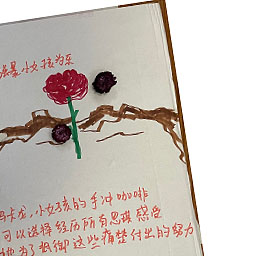 最小女孩为至
卡龙,小女孩的手冲咖啡
可以选择经历所有思琪感受
她为了抵御这些痛楚付出的努力